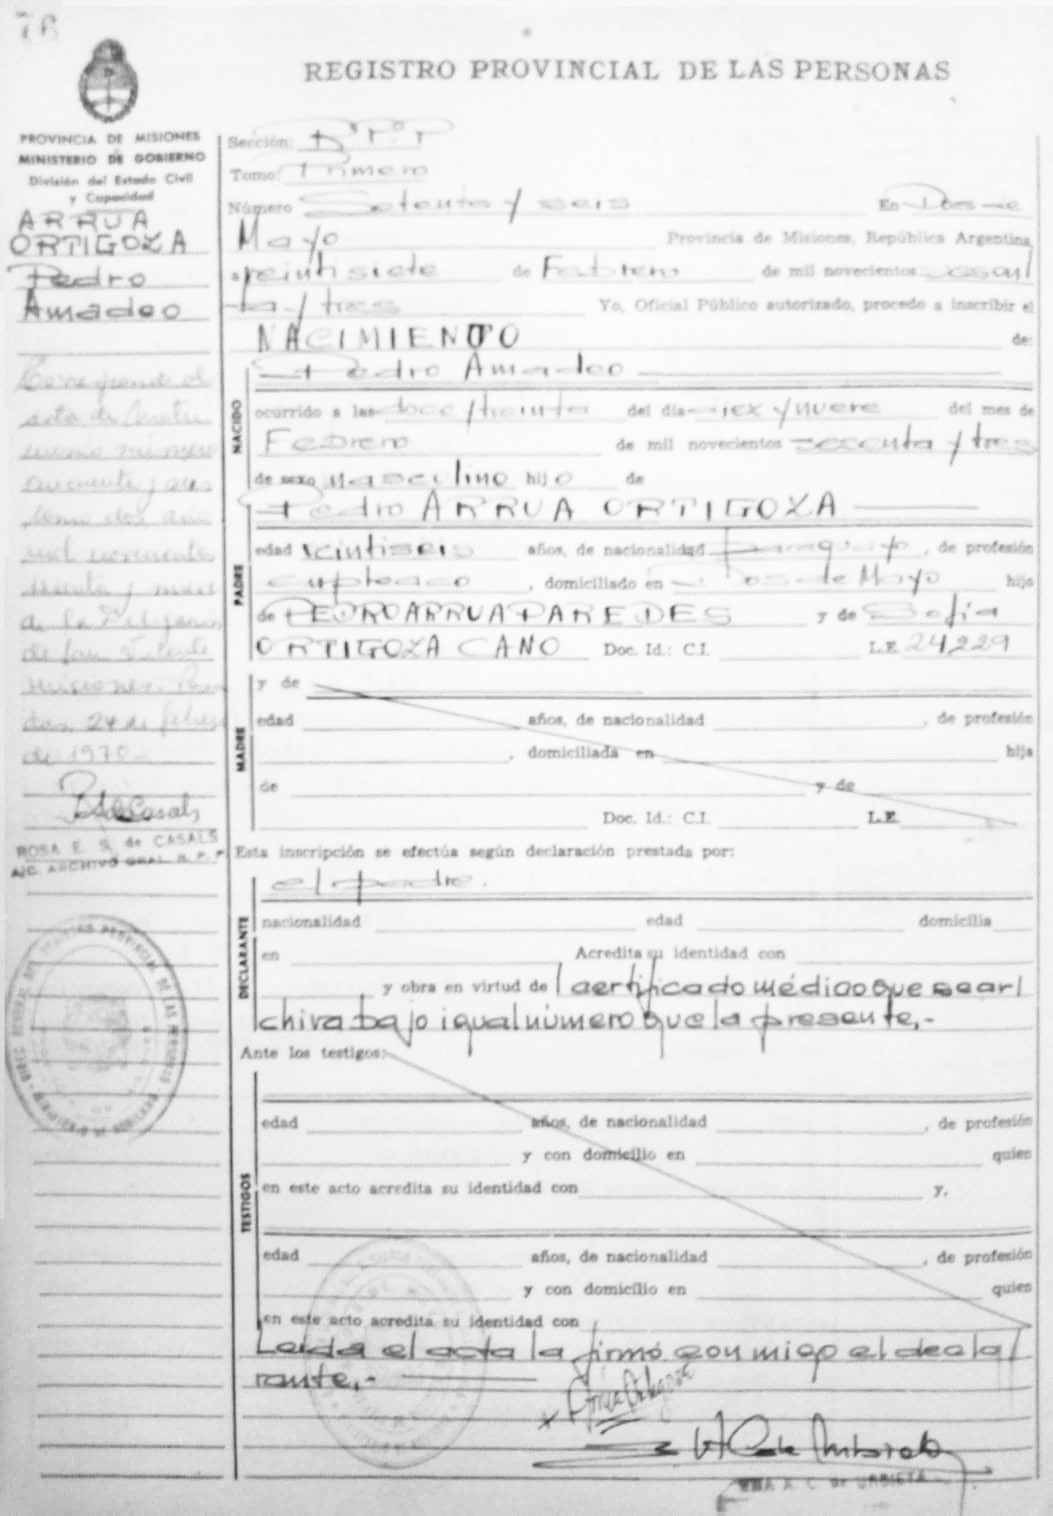 76
REGISTRO PROVINCIAL DE LAS PERSONAS
PROVINCIA DE MISIONES
MINISTERIO DE GOBIERNO
División del Estado Civil
y Capacidad
ARRUA
ORTIGOZA
Pedro
Amadeo
Corresponde al
acta de
tomo dos
mil novecientos
de la
de San Vicente
Misiones.
das, 24 de febrero
de 1970
ROSA E. S. de CASALS
A/C. ARCHIVO GRAL. R. P. P.
Sección:
Tomo: Primero
Número Setenta y seis En Dos de
Mayo Provincia de Misiones, República Argentina,
a veintisiete de Febrero de mil novecientos sesen/
ta y tres Yo, Oficial Público autorizado, procedo a inscribir el
NACIMIENTO de:
NACIDO
Pedro Amadeo
ocurrido a las doce y treinta del día diez y nueve del mes de
Febrero de mil novecientos sesenta y tres
de sexo masculino hijo de
PADRE
Pedro ARRUA ORTIGOZA
edad veintiseis años, de nacionalidad paraguayo, de profesión
empleado, domiciliado en Dos de Mayo hijo
de PEDRO ARRUA PAREDES y de Sofia
ORTIGOZA CANO Doc. Id.: C.I. L.E 24,229
MADRE
y de
edad años, de nacionalidad , de profesión
, domiciliada en hija
de y de
Doc. Id.: C.I. L.E
Esta inscripción se efectúa según declaración prestada por:
DECLARANTE
el padre.
nacionalidad edad domicilia
en Acredita su identidad con
y obra en virtud de l certificado médico que se ar/
chiva bajo igual número que la presente,-
Ante los testigos:
TESTIGOS
edad años, de nacionalidad , de profesión
y con domicilio en quien
en este acto acredita su identidad con y,
edad años, de nacionalidad , de profesión
y con domicilio en quien
en este acto acredita su identidad con
Leída el acta la firmó conmigo el decla/
rante,-
A. C. de URBIETA